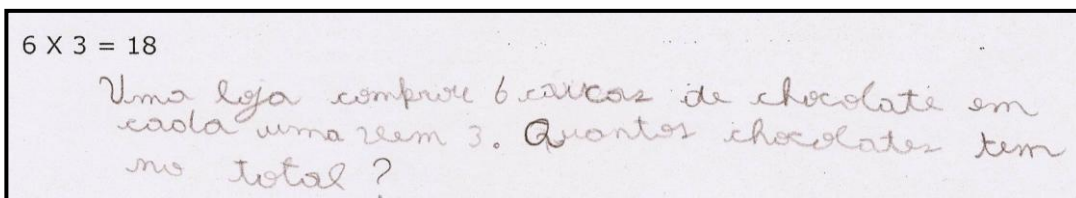 6 X 3 = 18
Uma loja comprou 6 caixas de chocolate em
cada uma vem 3. Quantos chocolates tem
no total?